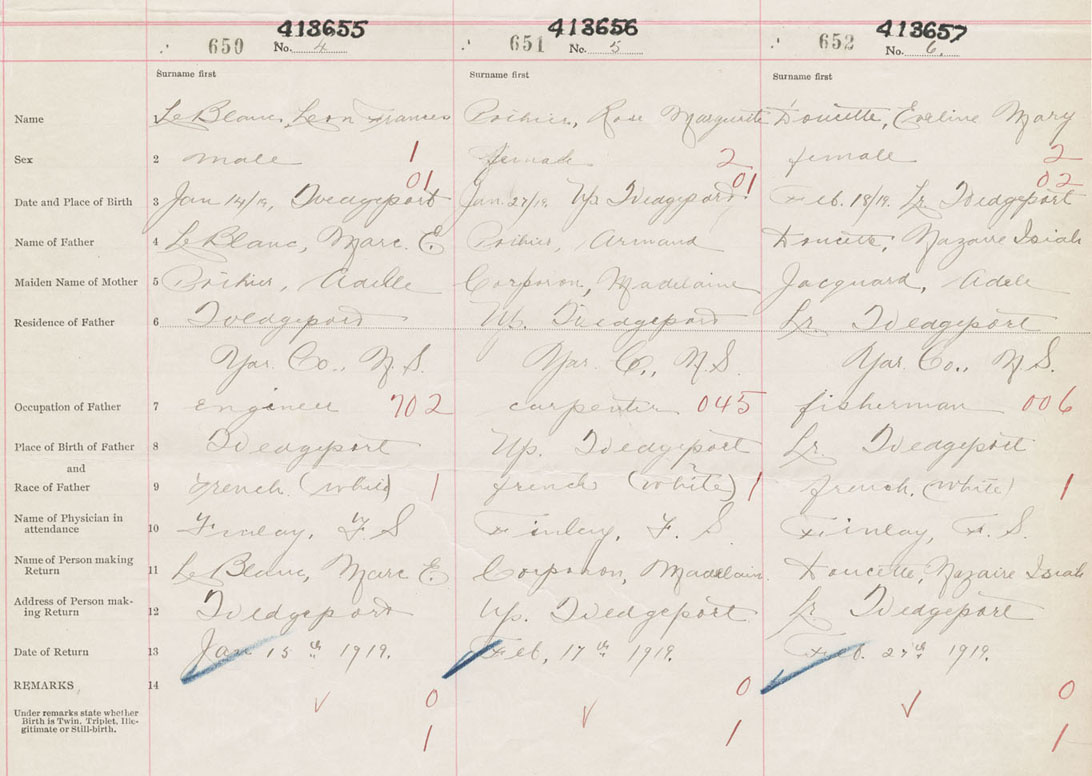 413655 413656 413657
650 No. 4 651 No. 5 652 No. 6
Surname first Surname first Surname first
Name 1 LeBlanc, Leon Frances Poihier, Rose Marguerite Doucette, Eveline Mary
Sex 2 male 1 female 2 female 2
01 01 02
Date and Place of Birth 3 Jan 14/19, Wedgeport Jan 27/19. Up. Wedgeport. Feb. 18/19. Lr. Wedgeport
Name of Father 4 LeBlanc, Marc E. Poihier, Armand Doucette, Nazaire Isiah
Maiden Name of Mother 5 Poihier, Adelle Corporon, Madelaine Jacquard, Adele
Residence of Father 6 Wedgeport Up. Wedgeport Lr. Wedgeport
Yar. Co., N.S. Yar. Co., N.S. Yar. Co., N.S.
Occupation of Father 7 Engineer 702 carpenter 045 fisherman 006
Place of Birth of Father 8 Wedgeport Up. Wedgeport Lr Wedgeport
and
Race of Father 9 French (white) 1 french (white) 1 french. (white) 1
Name of Physician in
attendance 10 Finlay, F. S Finlay, F. S. Finlay, F. S.
Name of Person making
Return 11 LeBlanc, Marc E. Corporon, Madelaine. Doucette, Nazaire Isiah
Address of Person mak-
ing Return 12 Wedgeport Up. Wedgeport Lr Wedgeport
Date of Return 13 Jan 15th 1919. Feb, 17th 1919. Feb. 27th 1919.
REMARKS, 14 0 0 0
Under remarks state whether
Birth is Twin, Triplet, Ille-
gitimate or Still-birth. 1 1 1